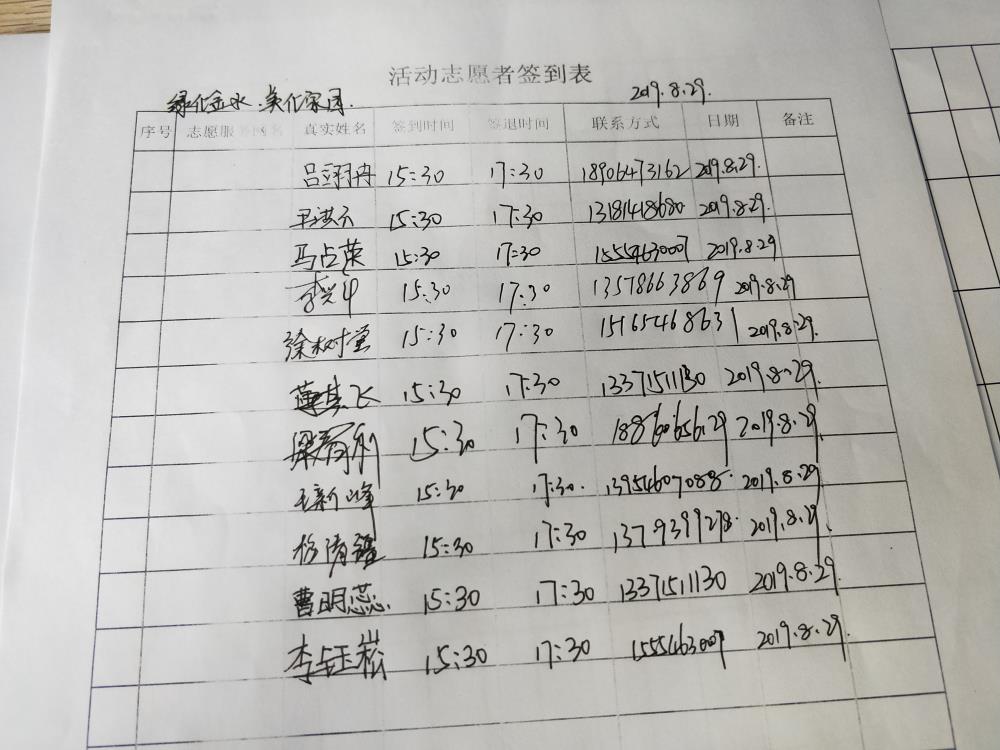 活动志愿者签到表
绿化金水·美化家园. 2019.8.29.
序号 志愿服务网名 真实姓名 签到时间 签退时间 联系方式 日期 备注
吕翊冉 15:30 17:30 18906473162 2019.8.29.
15:30 17:30 13181418680 2019.8.29.
马占荣 15:30 17:30 15554630007 2019.8.29
15:30 17:30 13578663869 2019.8.29
徐树堂 15:30 17:30 15165468631 2019.8.29.
薄其飞 15:30 17:30 13371511130 2019.8.29.
15:30 17:30 18860656129 2019.8.29.
王新峰 15:30 17:30. 13954607088 2019.8.29
杨清 15:30 17:30 13793999278 2019.8.29
曹明蕊. 15:30 17:30 13371511130 2019.8.29.
李钰崧 15:30 17:30 1555463007 2019.8.29.